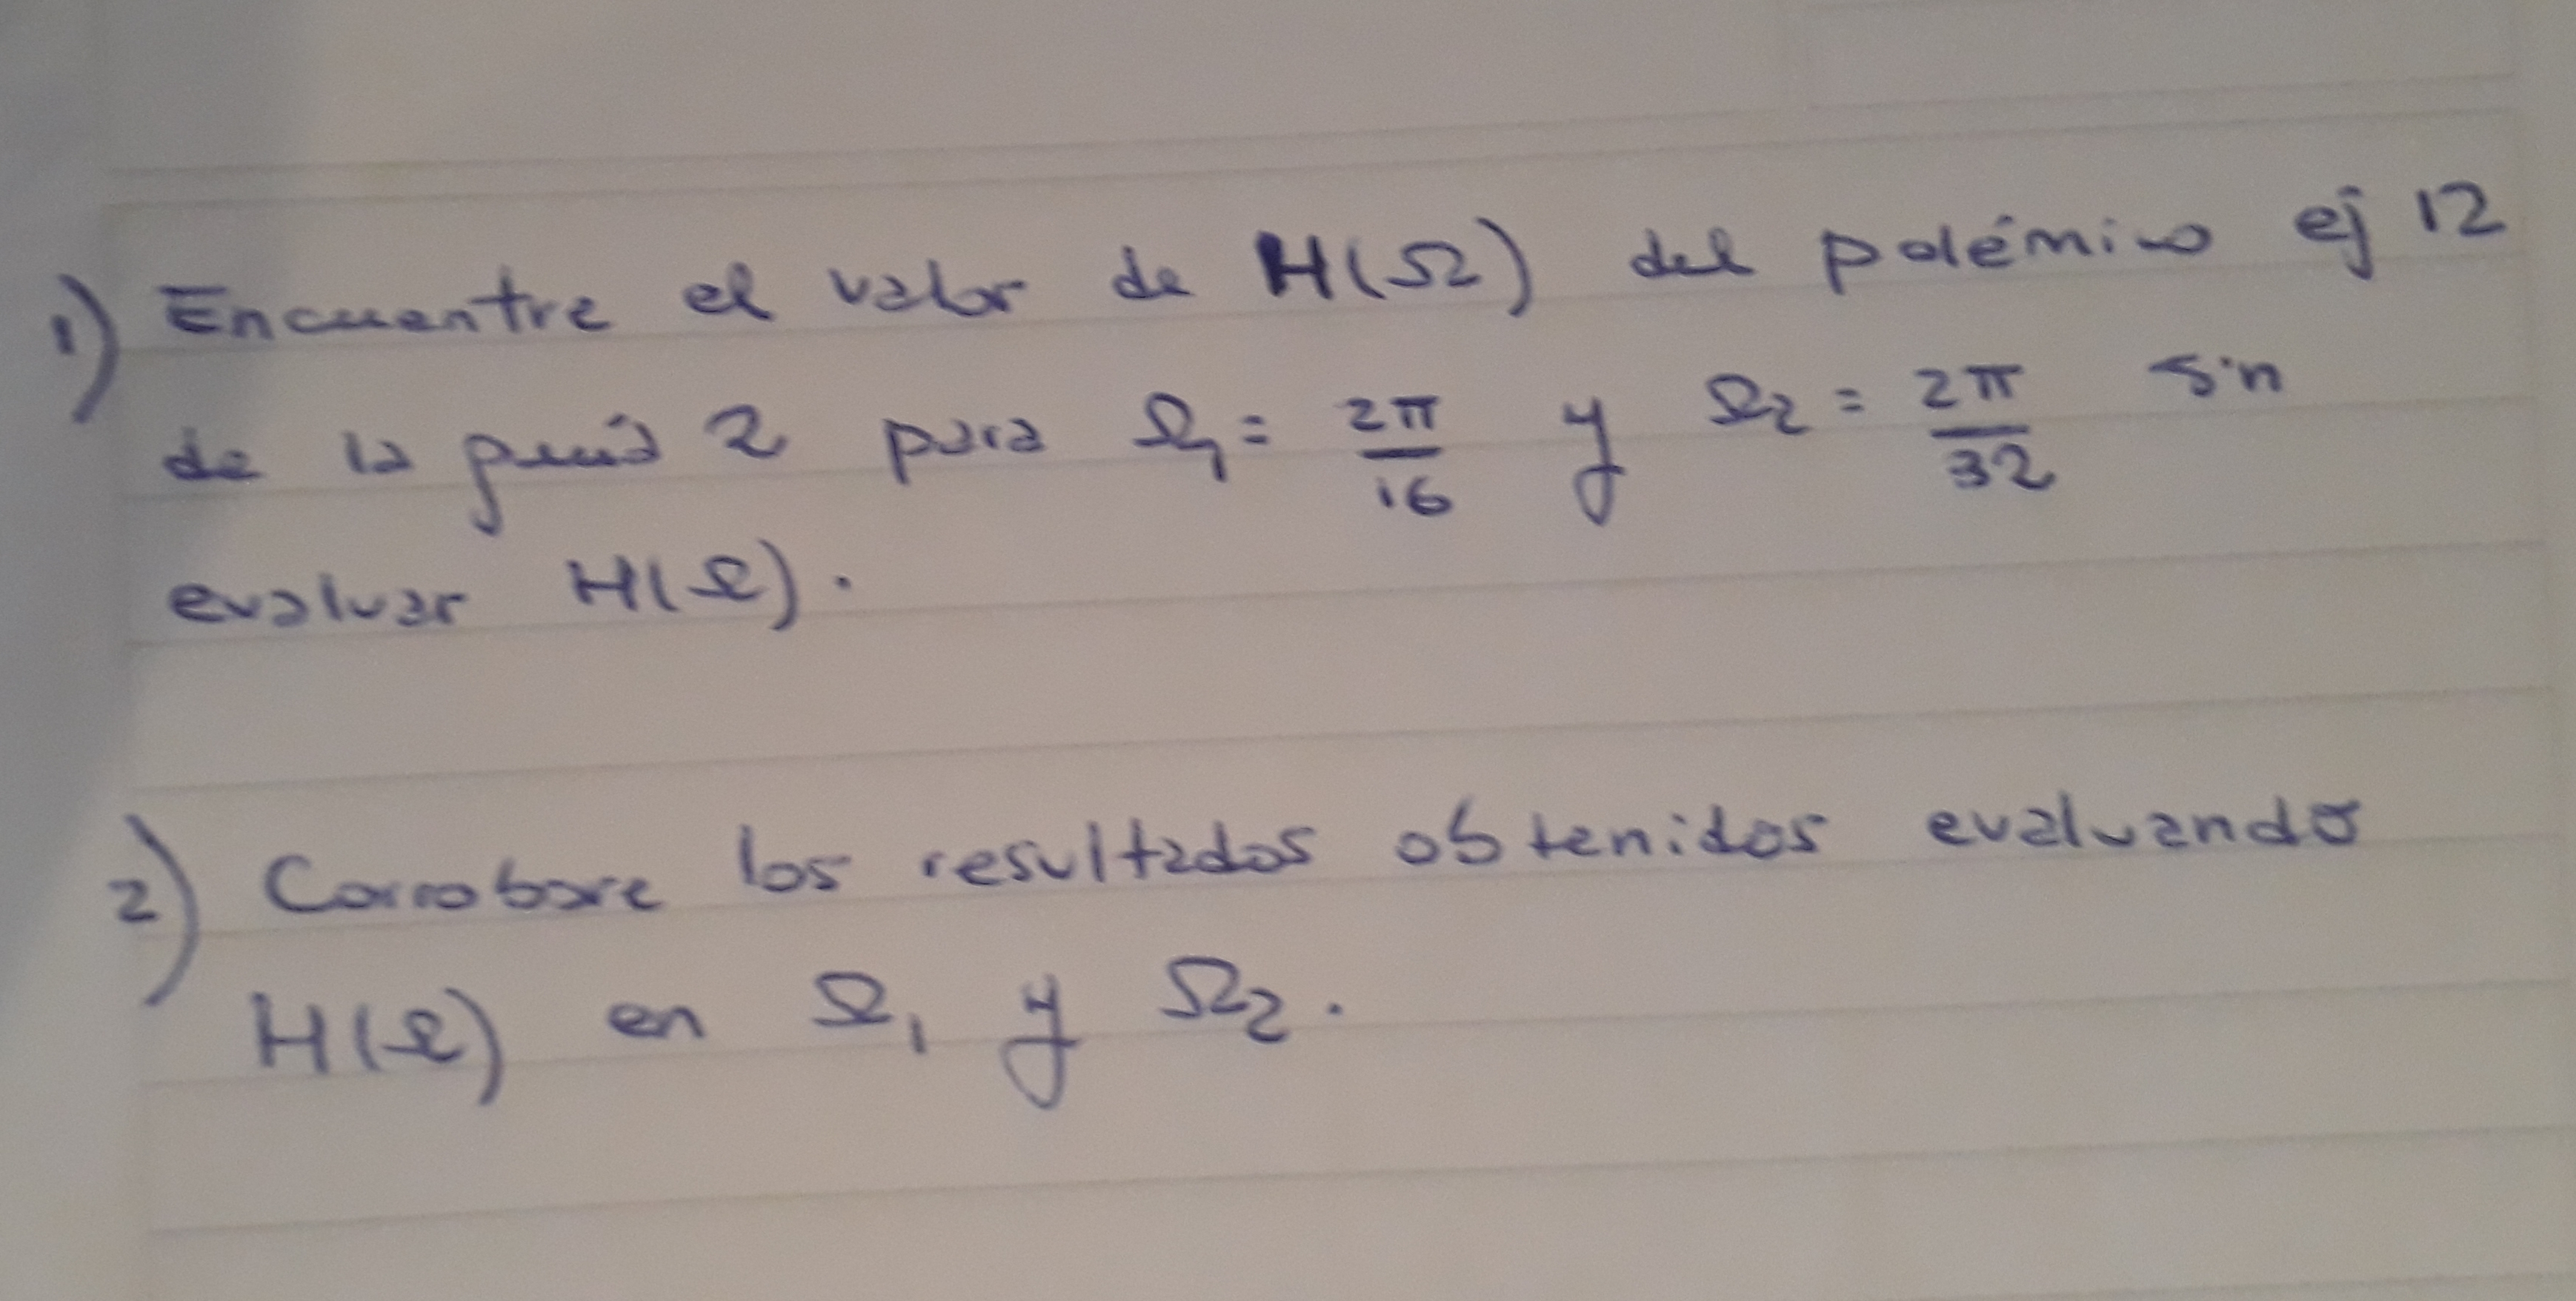 1) Encuentre el valor de H(Ω) del polémico ej 12
de la guía 2 para Ω₁ = 2π/16 y Ω₂ = 2π/32 sin
evaluar H(Ω).
2) Corrobore los resultados obtenidos evaluando
H(Ω) en Ω₁ y Ω₂.